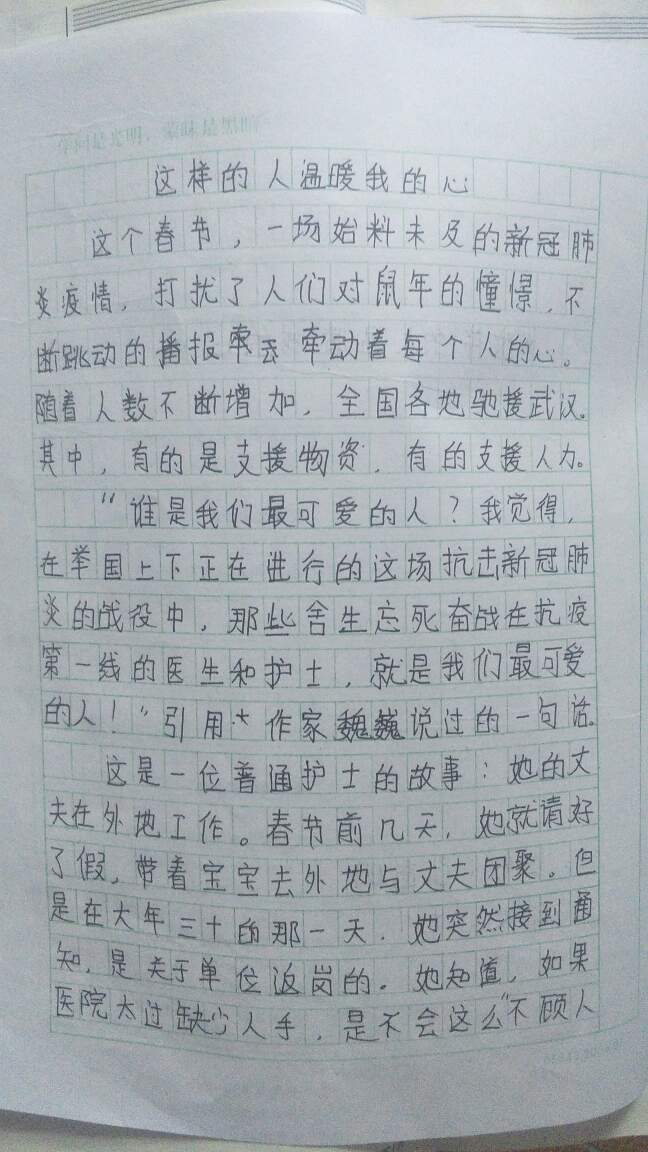 学问是光明，蒙昧是黑暗
这样的人温暖我的心
这个春节，一场始料未及的新冠肺
炎疫情，打扰了人们对鼠年的憧憬，不
断跳动的播报牵动着每个人的心。
随着人数不断增加，全国各地驰援武汉。
其中，有的是支援物资，有的支援人力。
“谁是我们最可爱的人？我觉得，
在举国上下正在进行的这场抗击新冠肺
炎的战役中，那些舍生忘死奋战在抗疫
第一线的医生和护士，就是我们最可爱
的人！”引用作家魏巍说过的一句话。
这是一位普通护士的故事：她的丈
夫在外地工作。春节前几天，她就请好
了假，带着宝宝去外地与丈夫团聚。但
是在大年三十的那一天，她突然接到通
知，是关于单位返岗的。她知道，如果
医院太过缺少人手，是不会这么“不顾人